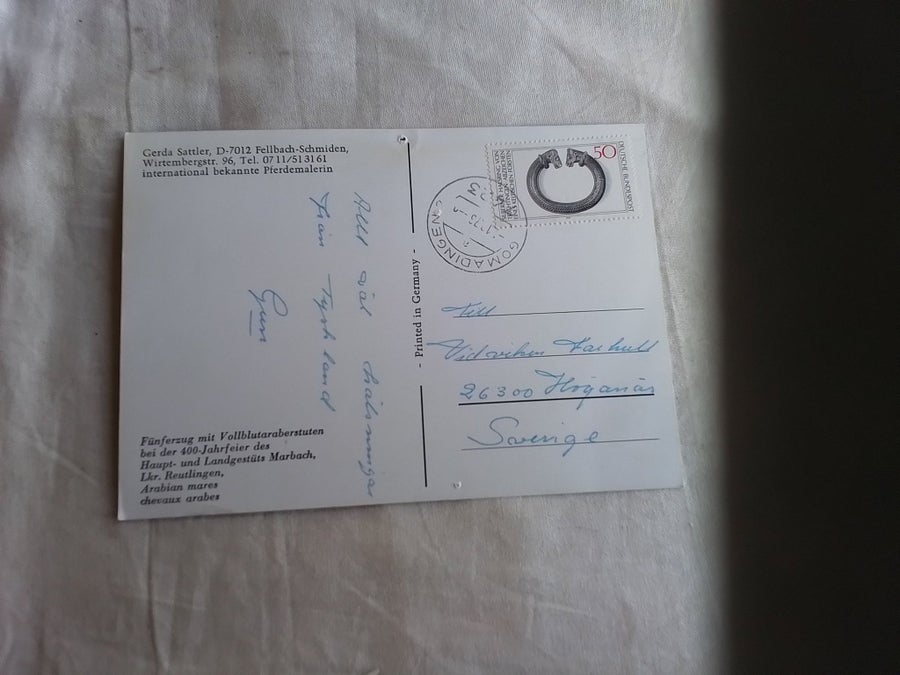 Gerda Sattler, D-7012 Fellbach-Schmiden,
Wirtembergstr. 96, Tel. 0711/513161
international bekannte Pferdemalerin
Allt väl hälsningar
från Tyskland
Gun
Fünferzug mit Vollblutaraberstuten
bei der 400-Jahrfeier des
Haupt- und Landgestüts Marbach,
Lkr. Reutlingen,
Arabian mares
chevaux arabes
- Printed in Germany -
50
DEUTSCHE BUNDESPOST
GOMADINGEN
Till
26300 Höganäs
Sverige